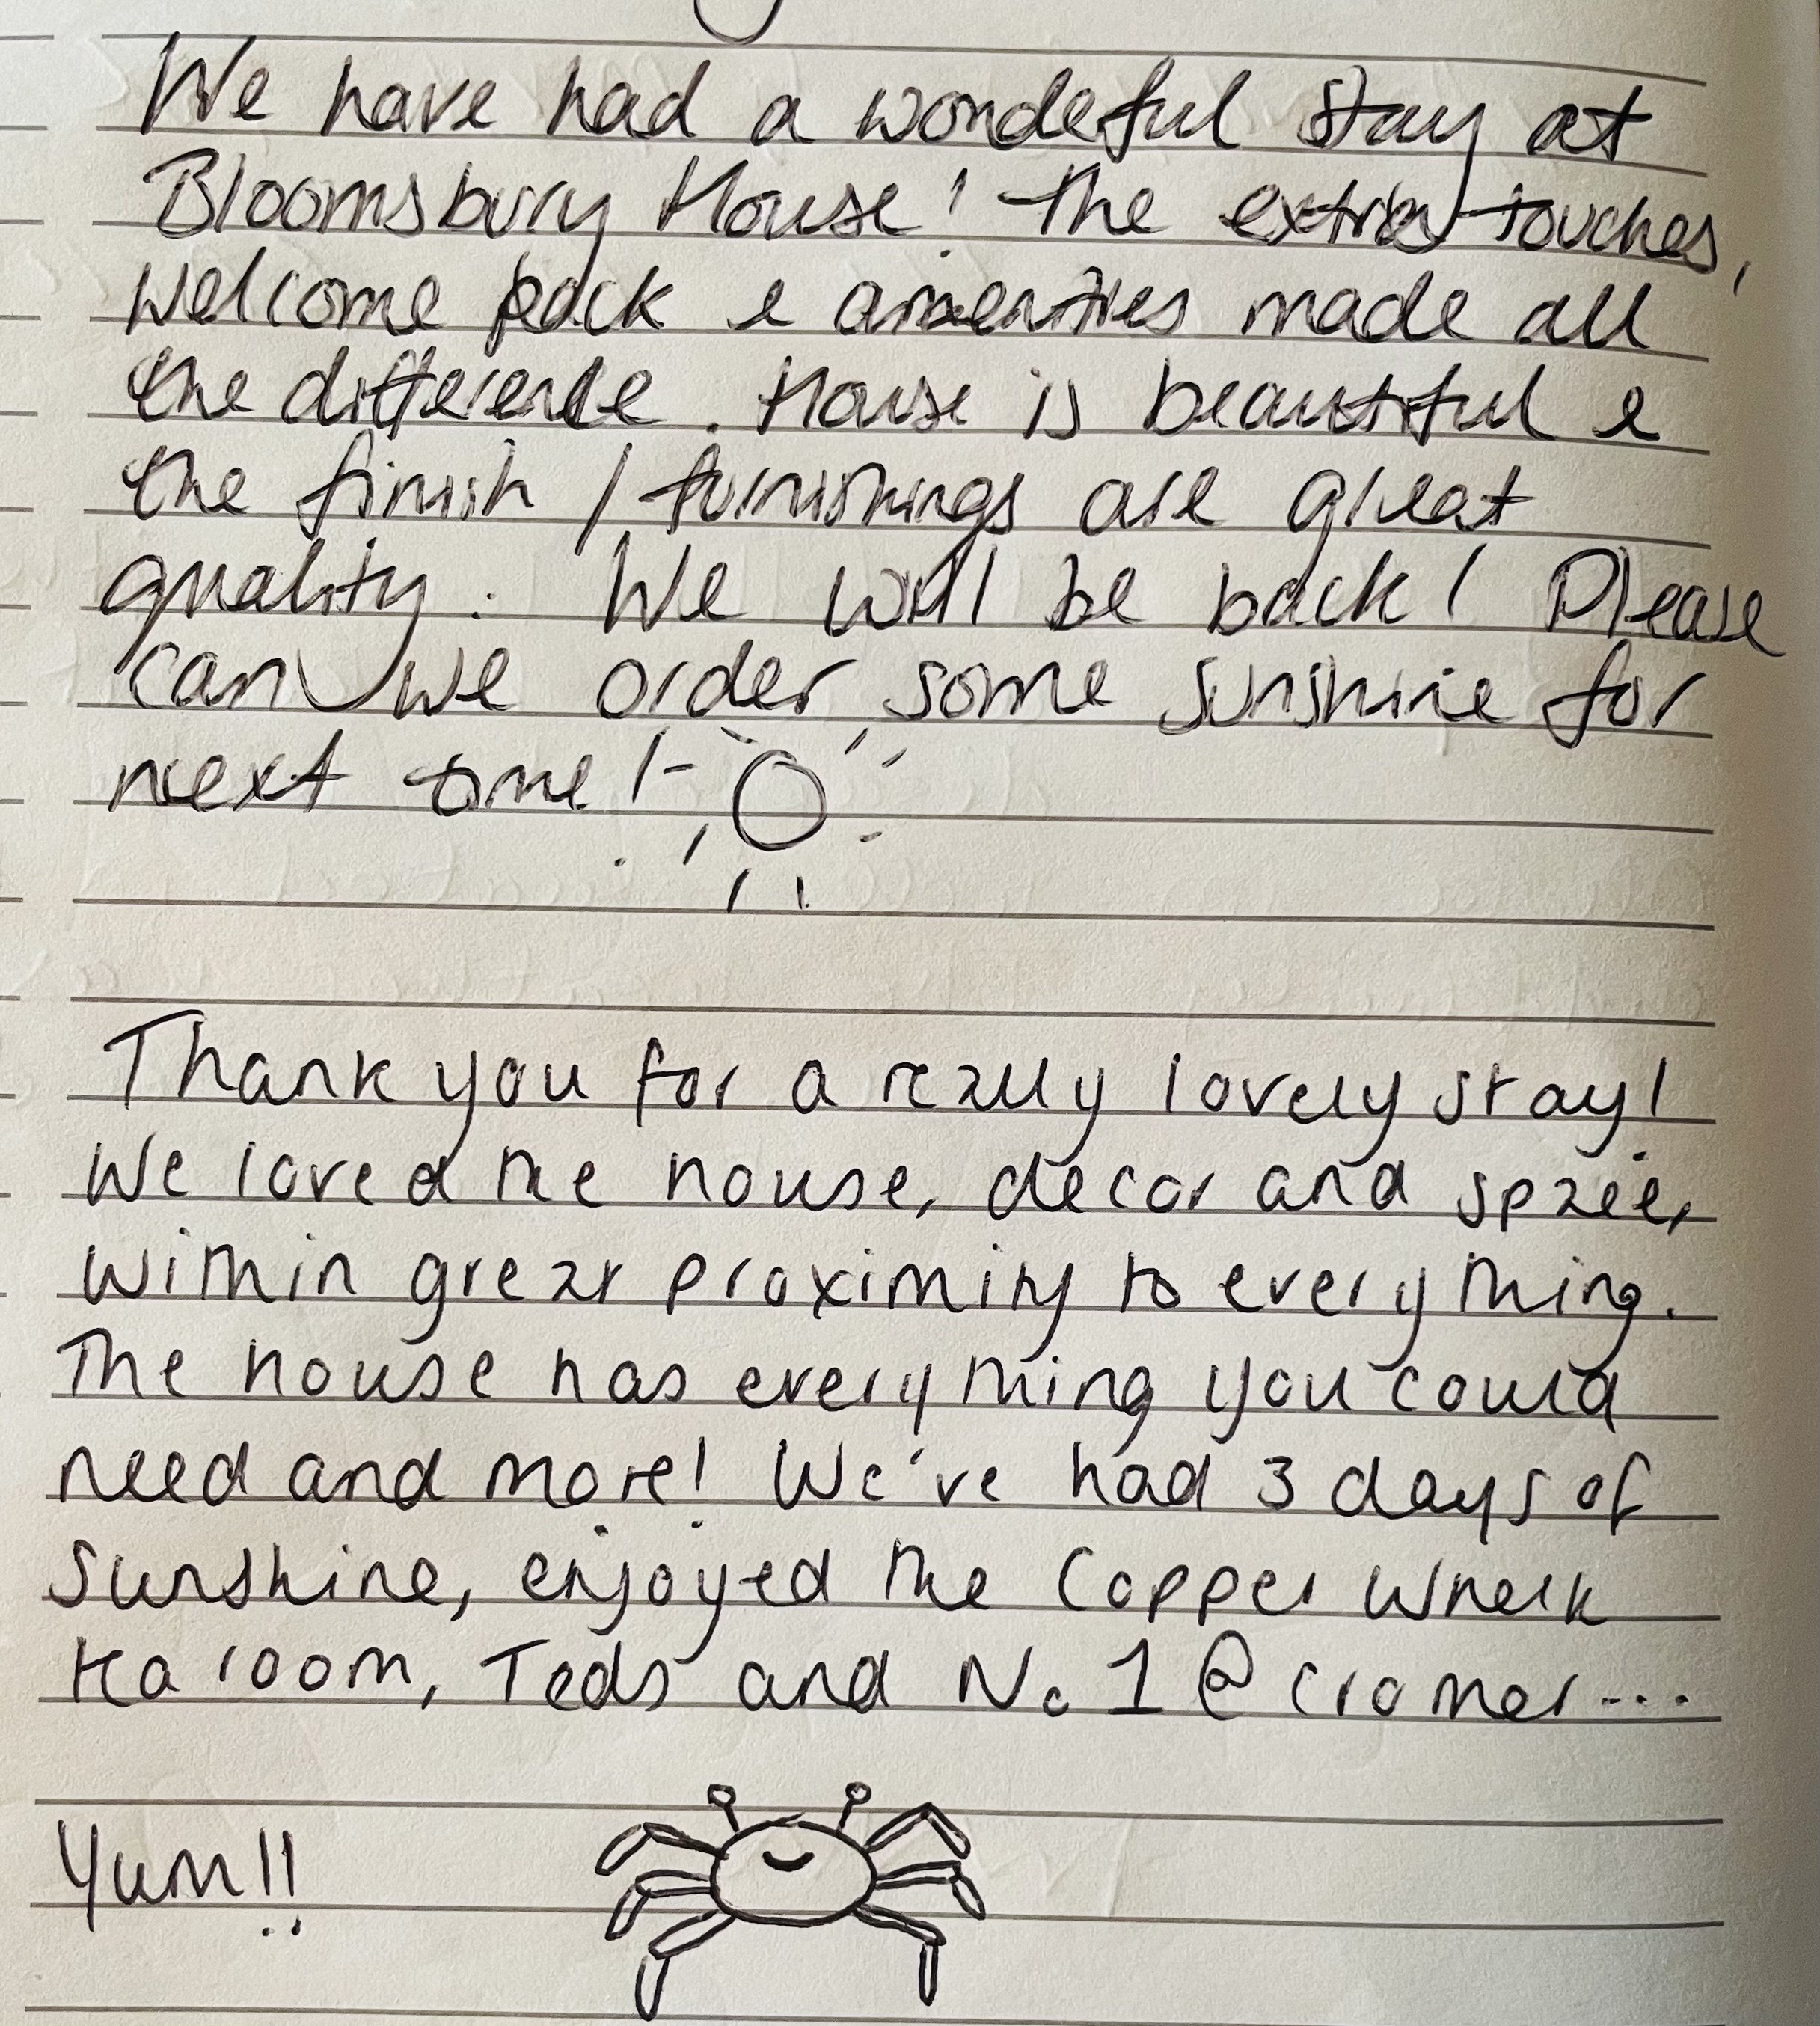 We have had a wondeful stay at
Bloomsbury House! The extra touches,
welcome pack & amenities made all
the difference. House is beautiful &
the finish / furnishings are great
quality. We will be back! Please
can we order some sunshine for
next time!
Thank you for a really lovely stay!
We loved the house, decor and space,
within great proximity to everything.
The house has everything you could
need and more! We've had 3 days of
sunshine, enjoyed the Copper Whelk
tea room, Teds and No 1 @ cromer...
Yum!!